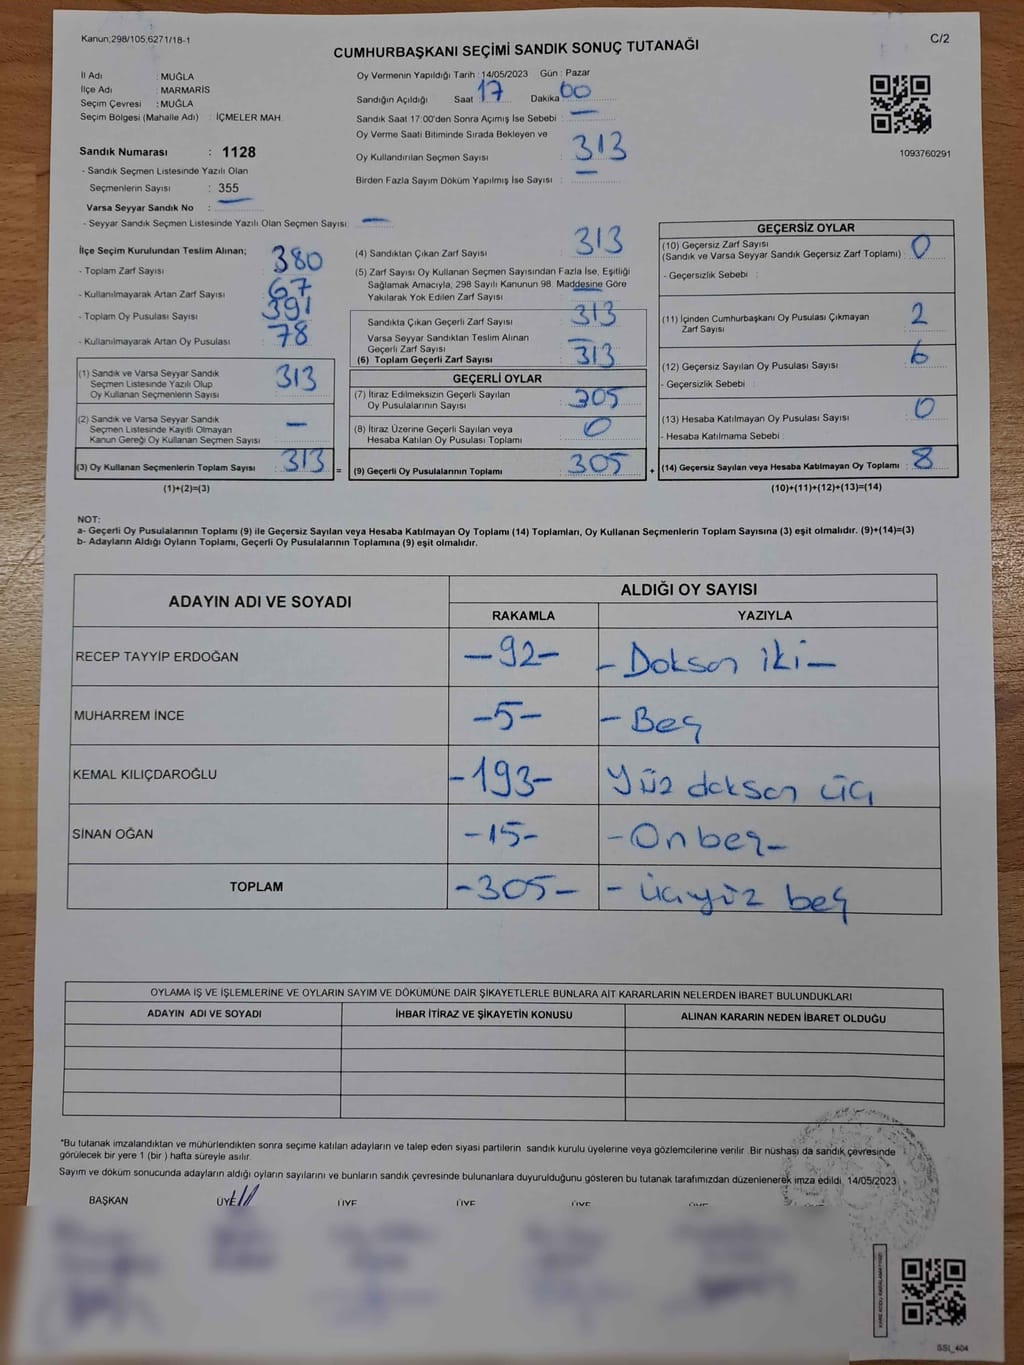 Kanun;298/105,6271/18-1
C/2
CUMHURBAŞKANI SEÇİMİ SANDIK SONUÇ TUTANAĞI
İl Adı : MUĞLA
İlçe Adı : MARMARİS
Seçim Çevresi : MUĞLA
Seçim Bölgesi (Mahalle Adı) : İÇMELER MAH.
Sandık Numarası : 1128
- Sandık Seçmen Listesinde Yazılı Olan
Seçmenlerin Sayısı : 355
Varsa Seyyar Sandık No : —
- Seyyar Sandık Seçmen Listesinde Yazılı Olan Seçmen Sayısı : —
Oy Vermenin Yapıldığı Tarih : 14/05/2023 Gün : Pazar
Sandığın Açıldığı Saat 17 Dakika 00
Sandık Saat 17:00'den Sonra Açımış İse Sebebi : —
Oy Verme Saati Bitiminde Sırada Bekleyen ve
Oy Kullandırılan Seçmen Sayısı : 313
Birden Fazla Sayım Döküm Yapılmış İse Sayısı : —
1093760291
İlçe Seçim Kurulundan Teslim Alınan;
- Toplam Zarf Sayısı : 380
- Kullanılmayarak Artan Zarf Sayısı : 67
- Toplam Oy Pusulası Sayısı : 391
- Kullanılmayarak Artan Oy Pusulası : 78
(1) Sandık ve Varsa Seyyar Sandık
Seçmen Listesinde Yazılı Olup
Oy Kullanan Seçmenlerin Sayısı : 313
(2) Sandık ve Varsa Seyyar Sandık
Seçmen Listesinde Kayıtlı Olmayan
Kanun Gereği Oy Kullanan Seçmen Sayısı : —
(3) Oy Kullanan Seçmenlerin Toplam Sayısı : 313
(1)+(2)=(3)
(4) Sandıktan Çıkan Zarf Sayısı : 313
(5) Zarf Sayısı Oy Kullanan Seçmen Sayısından Fazla İse, Eşitliği
Sağlamak Amacıyla, 298 Sayılı Kanunun 98. Maddesine Göre
Yakılarak Yok Edilen Zarf Sayısı : —
Sandıkta Çıkan Geçerli Zarf Sayısı : 313
Varsa Seyyar Sandıktan Teslim Alınan
Geçerli Zarf Sayısı : —
(6) Toplam Geçerli Zarf Sayısı : 313
GEÇERLİ OYLAR
(7) İtiraz Edilmeksizin Geçerli Sayılan
Oy Pusulalarının Sayısı : 305
(8) İtiraz Üzerine Geçerli Sayılan veya
Hesaba Katılan Oy Pusulası Toplamı : 0
= (9) Geçerli Oy Pusulalarının Toplamı : 305
GEÇERSİZ OYLAR
(10) Geçersiz Zarf Sayısı
(Sandık ve Varsa Seyyar Sandık Geçersiz Zarf Toplamı) : 0
- Geçersizlik Sebebi :
(11) İçinden Cumhurbaşkanı Oy Pusulası Çıkmayan
Zarf Sayısı : 2
(12) Geçersiz Sayılan Oy Pusulası Sayısı : 6
- Geçersizlik Sebebi :
(13) Hesaba Katılmayan Oy Pusulası Sayısı : 0
- Hesaba Katılmama Sebebi :
+ (14) Geçersiz Sayılan veya Hesaba Katılmayan Oy Toplamı : 8
(10)+(11)+(12)+(13)=(14)
NOT:
a- Geçerli Oy Pusulalarının Toplamı (9) ile Geçersiz Sayılan veya Hesaba Katılmayan Oy Toplamı (14) Toplamları, Oy Kullanan Seçmenlerin Toplam Sayısına (3) eşit olmalıdır. (9)+(14)=(3)
b- Adayların Aldığı Oyların Toplamı, Geçerli Oy Pusulalarının Toplamına (9) eşit olmalıdır.
ADAYIN ADI VE SOYADI ALDIĞI OY SAYISI
RAKAMLA YAZIYLA
RECEP TAYYİP ERDOĞAN —92— —Doksan iki—
MUHARREM İNCE —5— —Beş
KEMAL KILIÇDAROĞLU —193— Yüz doksan üç
SİNAN OĞAN —15— —Onbeş—
TOPLAM —305— —üçyüz beş
OYLAMA İŞ VE İŞLEMLERİNE VE OYLARIN SAYIM VE DÖKÜMÜNE DAİR ŞİKAYETLERLE BUNLARA AİT KARARLARIN NELERDEN İBARET BULUNDUKLARI
ADAYIN ADI VE SOYADI İHBAR İTİRAZ VE ŞİKAYETİN KONUSU ALINAN KARARIN NEDEN İBARET OLDUĞU
*Bu tutanak imzalandıktan ve mühürlendikten sonra seçime katılan adayların ve talep eden siyasi partilerin sandık kurulu üyelerine veya gözlemcilerine verilir .Bir nüshası da sandık çevresinde
görülecek bir yere 1 (bir ) hafta süreyle asılır.
Sayım ve döküm sonucunda adayların aldığı oyların sayılarını ve bunların sandık çevresinde bulunanlara duyurulduğunu gösteren bu tutanak tarafımızdan düzenlenerek imza edildi. 14/05/2023
BAŞKAN ÜYE ÜYE ÜYE ÜYE ÜYE
SSI_404